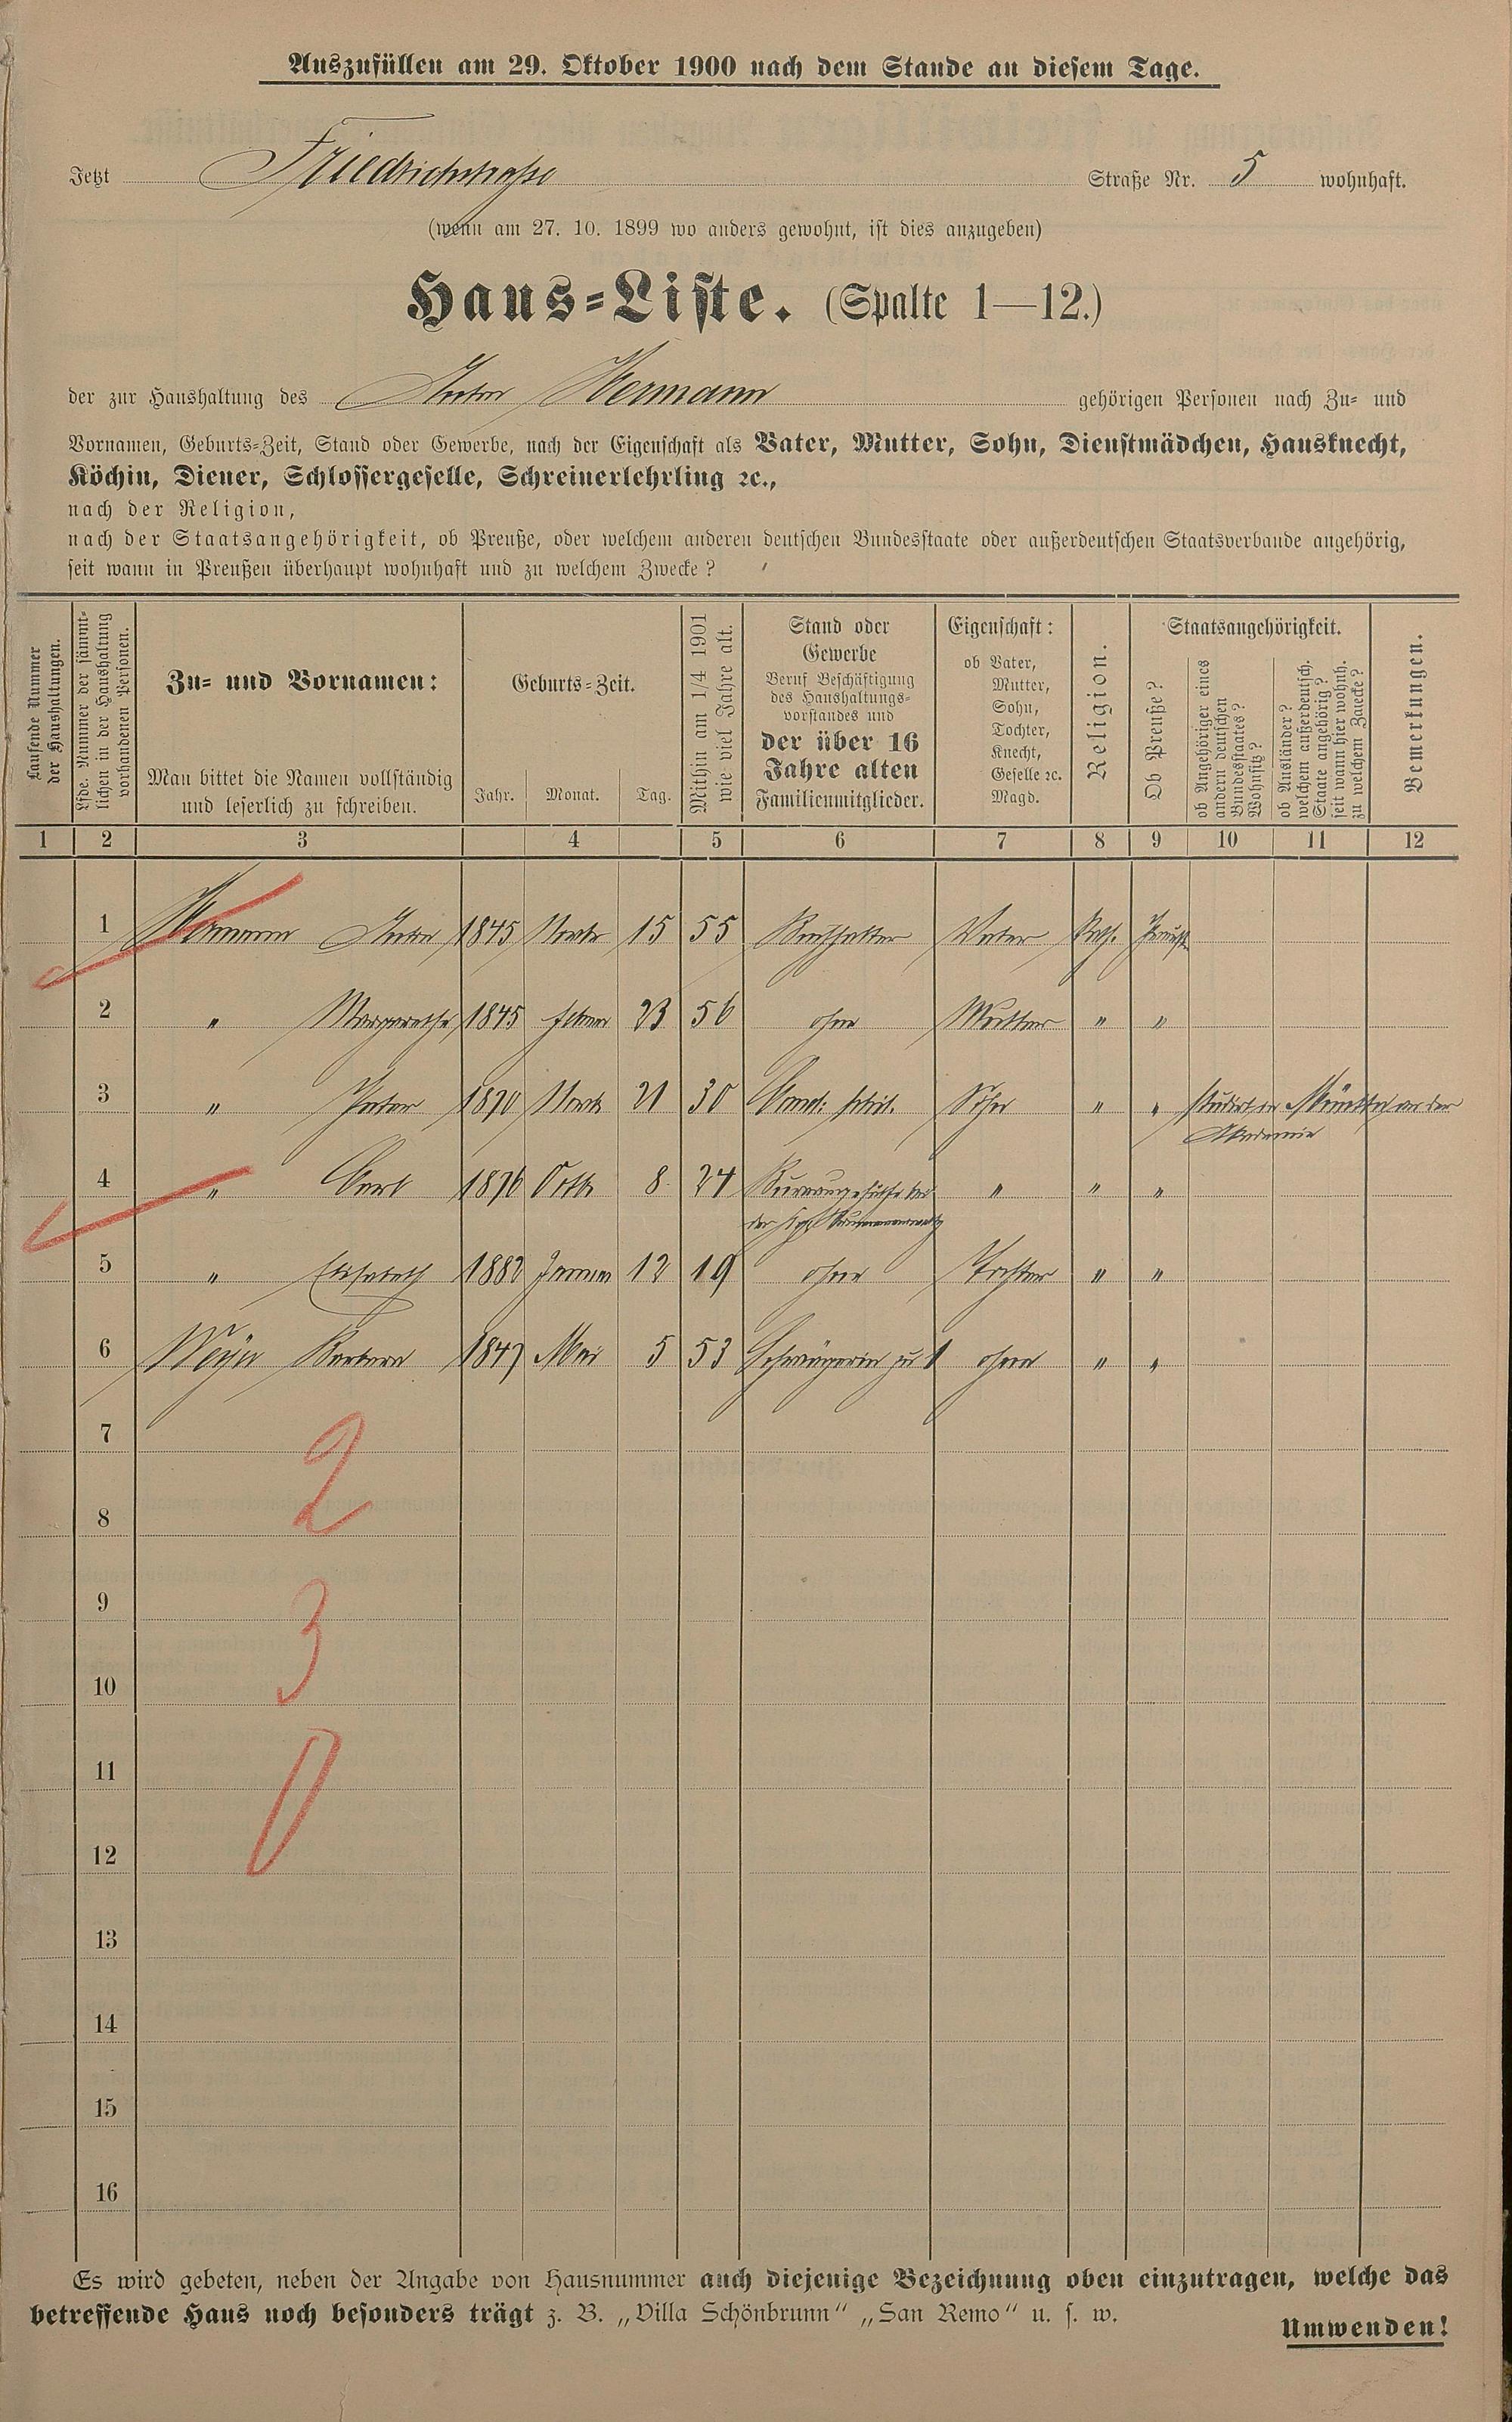 Auszufüllen am 29. Oktober 1900 nach dem Stande an diesem Tage.
Jetzt Friedrichstraße Straße Nr. 5 wohnhaft.
(wenn am 27. 10. 1899 wo anders gewohnt, ist dies anzugeben)
Haus-Liste. (Spalte 1—12.)
der zur Haushaltung des Anton Wermann gehörigen Personen nach Zu- und
Vornamen, Geburts-Zeit, Stand oder Gewerbe, nach der Eigenschaft als Vater, Mutter, Sohn, Dienstmädchen, Hausknecht,
Köchin, Diener, Schlossergeselle, Schreinerlehrling ꝛc.,
nach der Religion,
nach der Staatsangehörigkeit, ob Preuße, oder welchem anderen deutschen Bundesstaate oder außerdeutschen Staatsverbande angehörig,
seit wann in Preußen überhaupt wohnhaft und zu welchem Zwecke?
Laufende Nummer
der Haushaltungen.
Lfde. Nummer der sämmt-
lichen in der Haushaltung
vorhandenen Personen.
Zu- und Vornamen:
Man bittet die Namen vollständig
und leserlich zu schreiben.
Geburts-Zeit.
Jahr. Monat. Tag.
Mithin am 1/4 1901
wie viel Jahre alt.
Stand oder
Gewerbe
Beruf Beschäftigung
des Haushaltungs-
vorstandes und
der über 16
Jahre alten
Familienmitglieder.
Eigenschaft:
ob Vater,
Mutter,
Sohn,
Tochter,
Knecht,
Geselle ꝛc.
Magd.
Religion.
Staatsangehörigkeit.
Ob Preuße?
ob Angehöriger eines
andern deutschen
Bundesstaates?
Wohnsitz?
ob Ausländer?
welchem außerdeutsch.
Staate angehörig?
seit wann hier wohnh.
zu welchem Zwecke?
Bemerkungen.
1 2 3 4 5 6 7 8 9 10 11 12
1 Wermann Anton 1845 15 55 Buchhalter Vater Preuße
2 " Margarethe 1845 Februar 23 56 ohne Mutter " "
3 " Peter 1870 21 30 Sohn " " studirt in an der
Akademie
4 " Carl 1876 Octb 8 24 " " "
5 " Elisabeth 1882 Januar 12 19 ohne Tochter " "
6 Barbara 1847 Mai 5 53 Schwägerin zu 1 ohne " "
7
2
8
9
3
10
11
0
12
13
14
15
16
Es wird gebeten, neben der Angabe von Hausnummer auch diejenige Bezeichnung oben einzutragen, welche das
betreffende Haus noch besonders trägt z. B. „Villa Schönbrunn“ „San Remo“ u. s. w.
Umwenden!